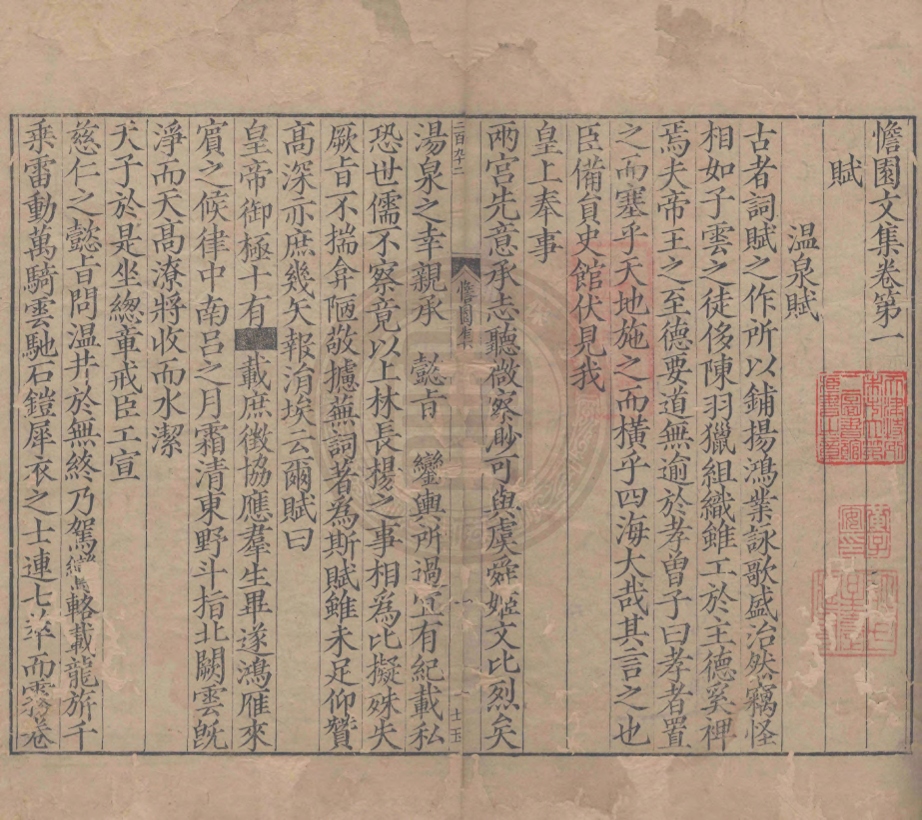 憺園文集卷第一
賦
温泉賦
古者詞賦之作所以鋪揚鴻業詠歌盛治然竊怪
相如子雲之徒侈陳羽獵組織雖工於主德奚裨
焉夫帝王之至德要道無逾於孝曾子曰孝者置
之而塞乎天地施之而横乎四海大哉其言之也
臣備員史館伏見我
皇上奉事
兩宫先意承志聽微察眇可與虞舜姬文比烈矣
二百九十二
憺園集
一
士玉
湯泉之幸親承 懿旨 鑾輿所過宜有紀載私
恐世儒不察竟以上林長楊之事相為比擬殊失
厥旨不揣弇陋敬攄蕪詞著為斯賦雖未足仰贊
高深亦庶幾矢報涓埃云爾賦曰
皇帝御極十有 載庶徴協應羣生畢遂鴻雁來
賓之候律中南吕之月霜清東野斗指北闕雲旣
淨而天高潦將收而水潔
天子於是坐總章戒臣工宣
慈仁之懿旨問温井於無終乃駕 輅載龍旂千
乘雷動萬騎雲馳石鎧犀衣之士連七萃而雲